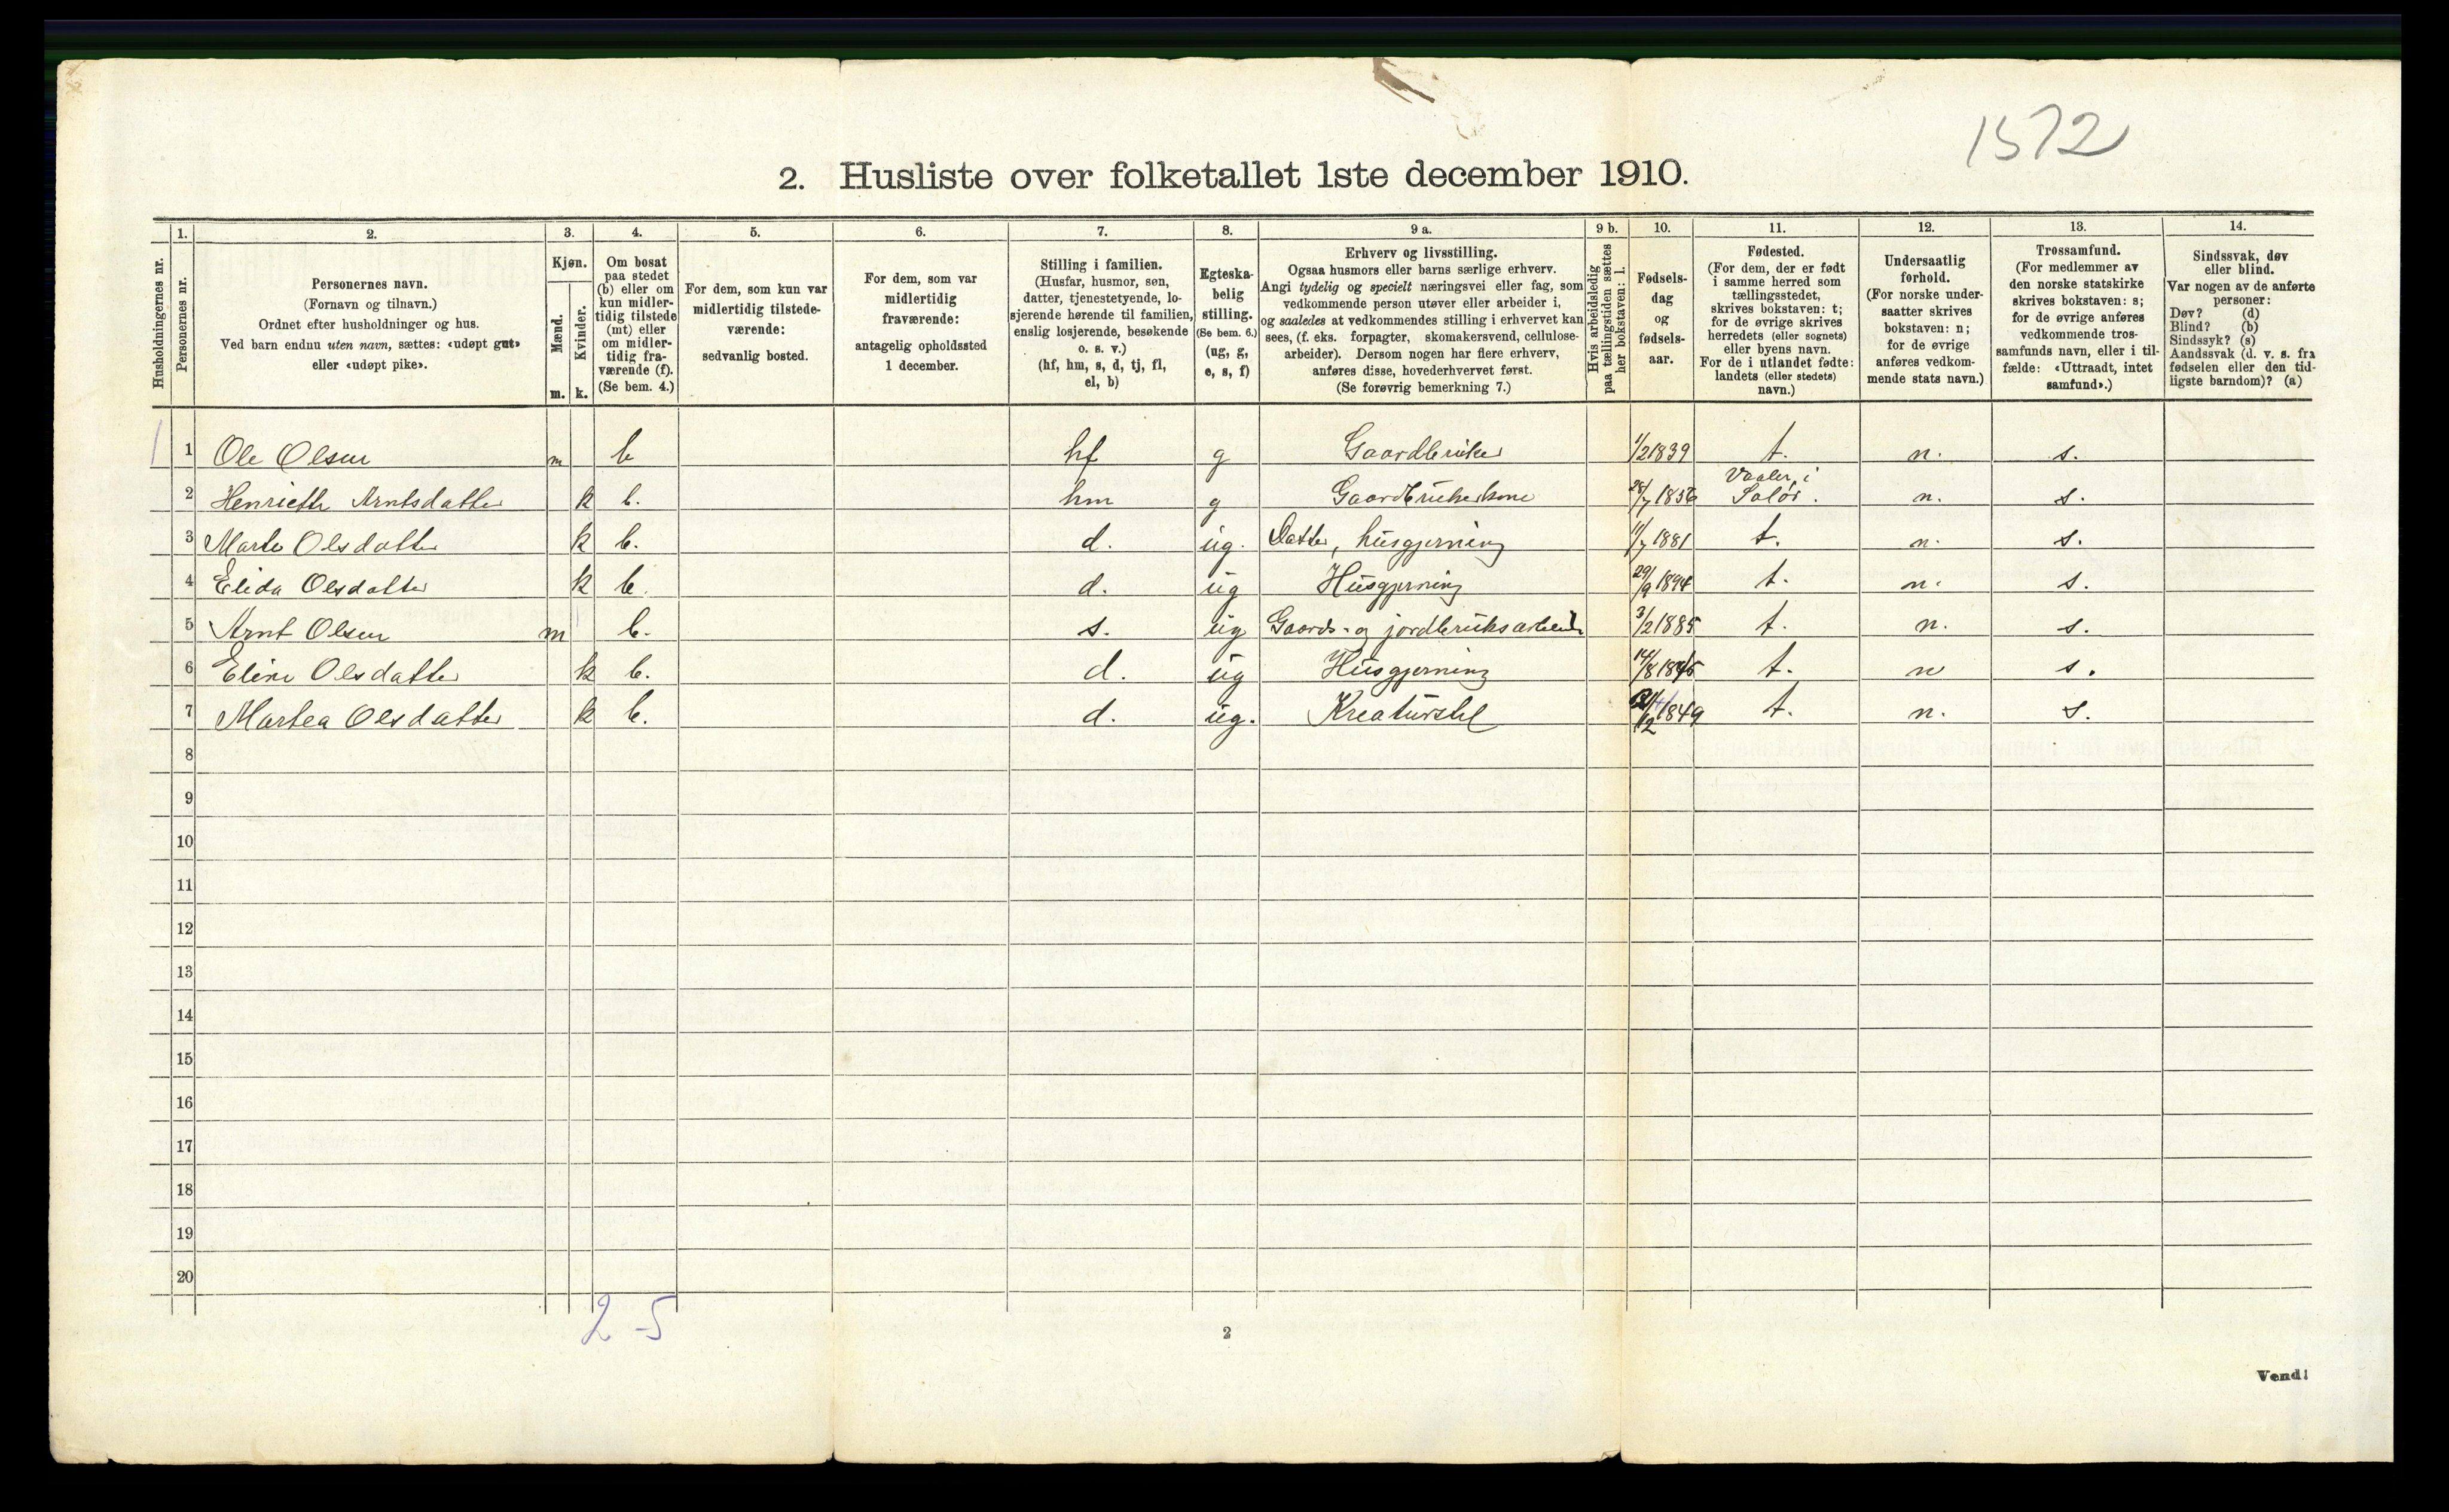 1572
2. Husliste over folketallet 1ste december 1910.
Husholdningernes nr.
1.
Personernes nr.
2.
Personernes navn.
(Fornavn og tilnavn.)
Ordnet efter husholdninger og hus.
Ved barn endnu uten navn, sættes: «udøpt gut»
eller «udøpt pike».
3.
Kjøn.
Mænd.
Kvinder.
m. k.
4.
Om bosat
paa stedet
(b) eller om
kun midler-
tidig tilstede
(mt) eller
om midler-
tidig fra-
værende (f).
(Se bem. 4.)
5.
For dem, som kun var
midlertidig tilstede-
værende:
sedvanlig bosted.
6.
For dem, som var
midlertidig
fraværende:
antagelig opholdssted
1 december.
7.
Stilling i familien.
(Husfar, husmor, søn,
datter, tjenestetyende, lo-
sjerende hørende til familien,
enslig losjerende, besøkende
o. s. v.)
(hf, hm, s, d, tj, fl,
el, b)
8.
Egteska-
belig
stilling.
(Se bem. 6.)
(ug, g,
e, s, f)
9 a.
Erhverv og livsstilling.
Ogsaa husmors eller barns særlige erhverv.
Angi tydelig og specielt næringsvei eller fag, som
vedkommende person utøver eller arbeider i,
og saaledes at vedkommendes stilling i erhvervet kan
sees, (f. eks. forpagter, skomakersvend, cellulose-
arbeider). Dersom nogen har flere erhverv,
anføres disse, hovederhvervet først.
(Se forøvrig bemerkning 7.)
9 b.
Hvis arbeidsledig
paa tællingstiden sættes
her bokstaven: l.
10.
Fødsels-
dag
og
fødsels-
aar.
11.
Fødested.
(For dem, der er født
i samme herred som
tællingsstedet,
skrives bokstaven: t;
for de øvrige skrives
herredets (eller sognets)
eller byens navn.
For de i utlandet fødte:
landets (eller stedets)
navn.)
12.
Undersaatlig
forhold.
(For norske under-
saatter skrives
bokstaven: n;
for de øvrige
anføres vedkom-
mende stats navn.)
13.
Trossamfund.
(For medlemmer av
den norske statskirke
skrives bokstaven: s;
for de øvrige anføres
vedkommende tros-
samfunds navn, eller i til-
fælde: «Uttraadt, intet
samfund».)
14.
Sindssvak, døv
eller blind.
Var nogen av de anførte
personer:
Døv? (d)
Blind? (b)
Sindssyk? (s)
Aandssvak (d. v. s. fra
fødselen eller den tid-
ligste barndom)? (a)
1 1 Ole Olsen m b hf g Gaardbruker 1/2 1839 t. n. s.
2 Henriette Arntsdatter k b. hm g Gaardbrukerkone 28/7 1856 Vaaler, i Solør. n. s.
3 Marte Olsdatter k b. d. ug. Datter, husgjerning 11/7 1881 t. n. s.
4 Elida Olsdatter k b. d. ug Husgjerning 29/9 1894 t. n. s.
5 Arnt Olsen m b. s. ug Gaards- og jordbruksarbeide 3/2 1885 t. n. s.
6 Eline Olsdatter k b. d. ug Husgjerning 14/8 t. n s.
7 Martea Olsdatter k b. d. ug. Kreaturstel 1849 t. n. s.
8
9
10
11
12
13
14
15
16
17
18
19
20
2-5
2
Vend!